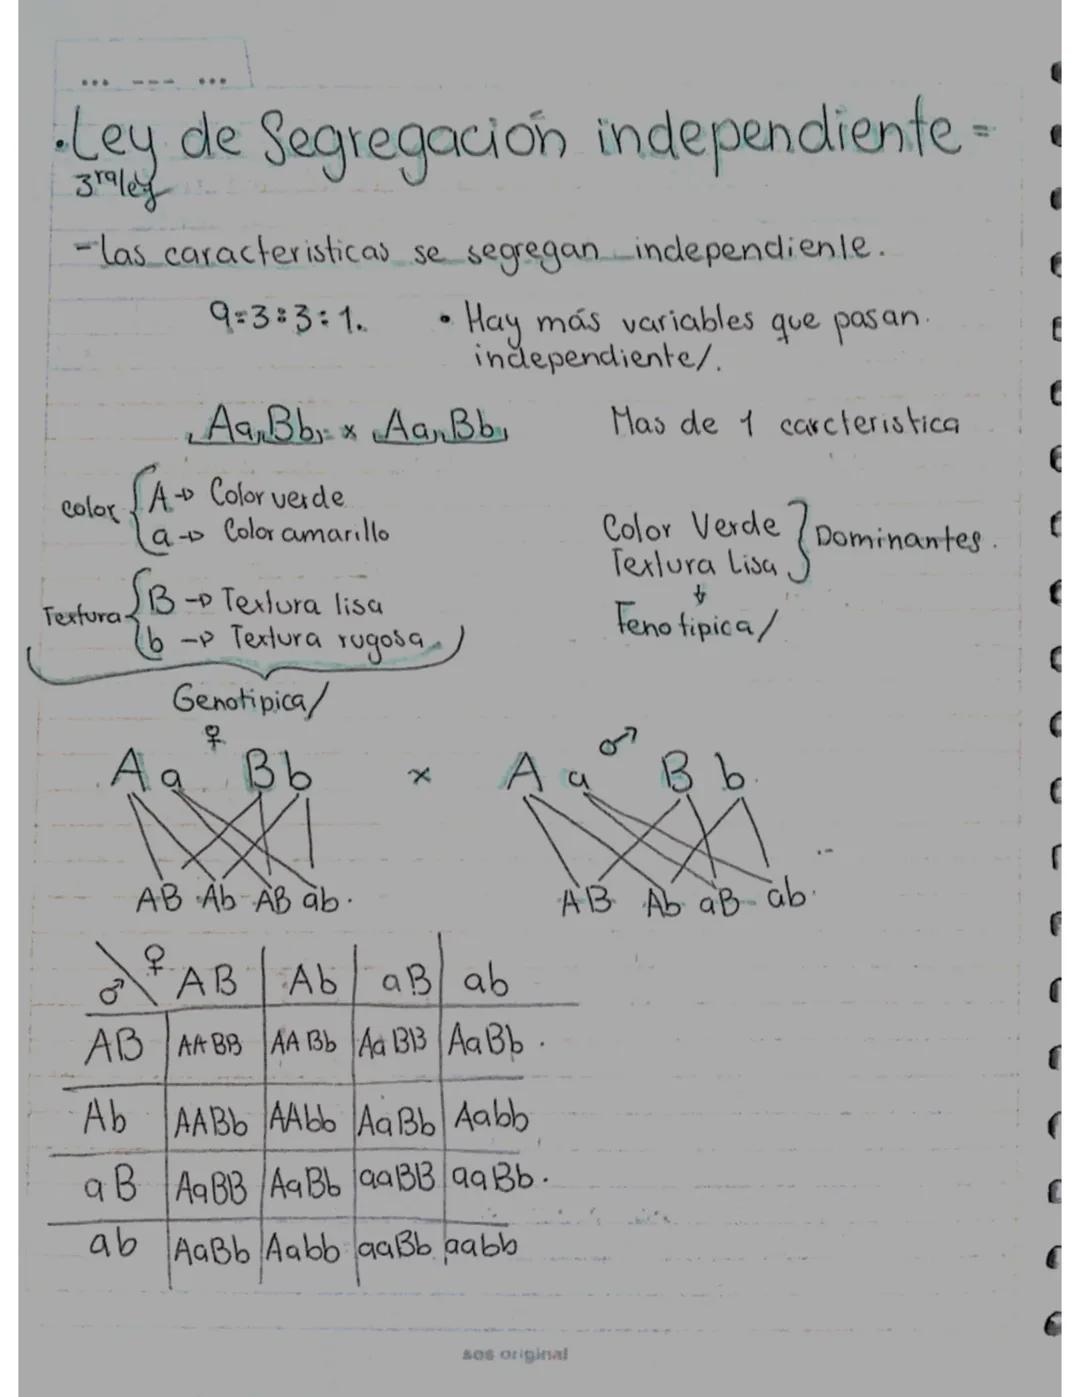 ... --- ...
·Ley de Segregación independiente=
3ra ley
-las caracteristicas se segregan independiente.
9=3:3:1. • Hay más variables que pasan.
independiente/.
Aa,Bb, x Aa,Bb, Mas de 1 carcteristica
color { A → Color verde
a → Color amarillo
Color Verde } Dominantes.
Textura Lisa
↓
Fenotipica/
Textura { B → Textura lisa
b → Textura rugosa
Genotipica/
♀ ♂
A a B b x A a B b.
AB Ab AB ab. AB Ab aB ab.
♂ \ ♀ AB Ab aB ab
AB AABB AABb AaBB AaBb.
Ab AABb AAbb AaBb Aabb
aB AaBB AaBb aaBB aaBb.
ab AaBb Aabb aaBb aabb
sos original